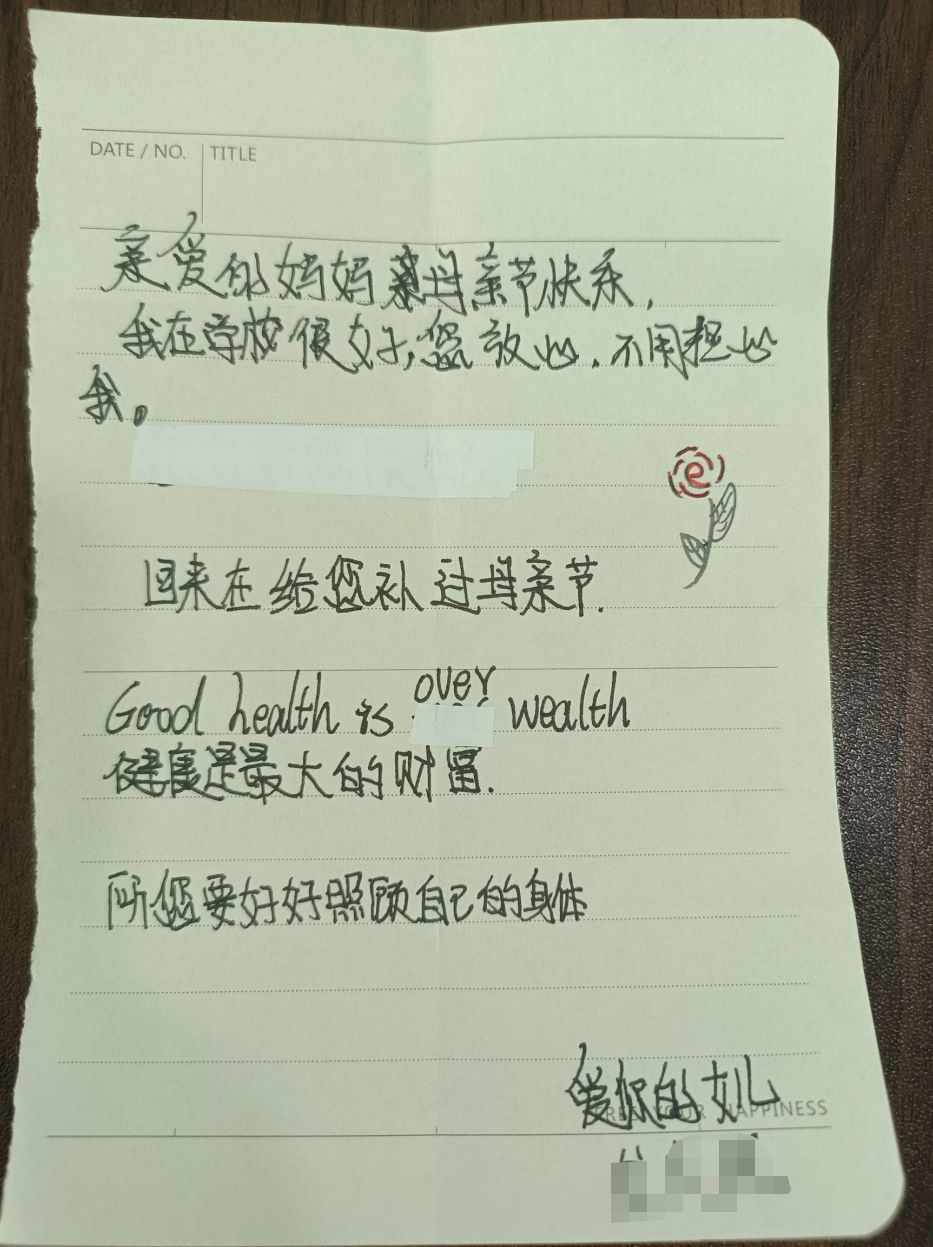 DATE / NO. TITLE
亲爱的妈妈母亲节快乐,
我在学校很好,您放心.不用担心
我。
回来在给您补过母亲节.
Good health is over wealth
健康是最大的财富.
所您要好好照顾自己的身体
爱你的女儿
YOUR HAPPINESS